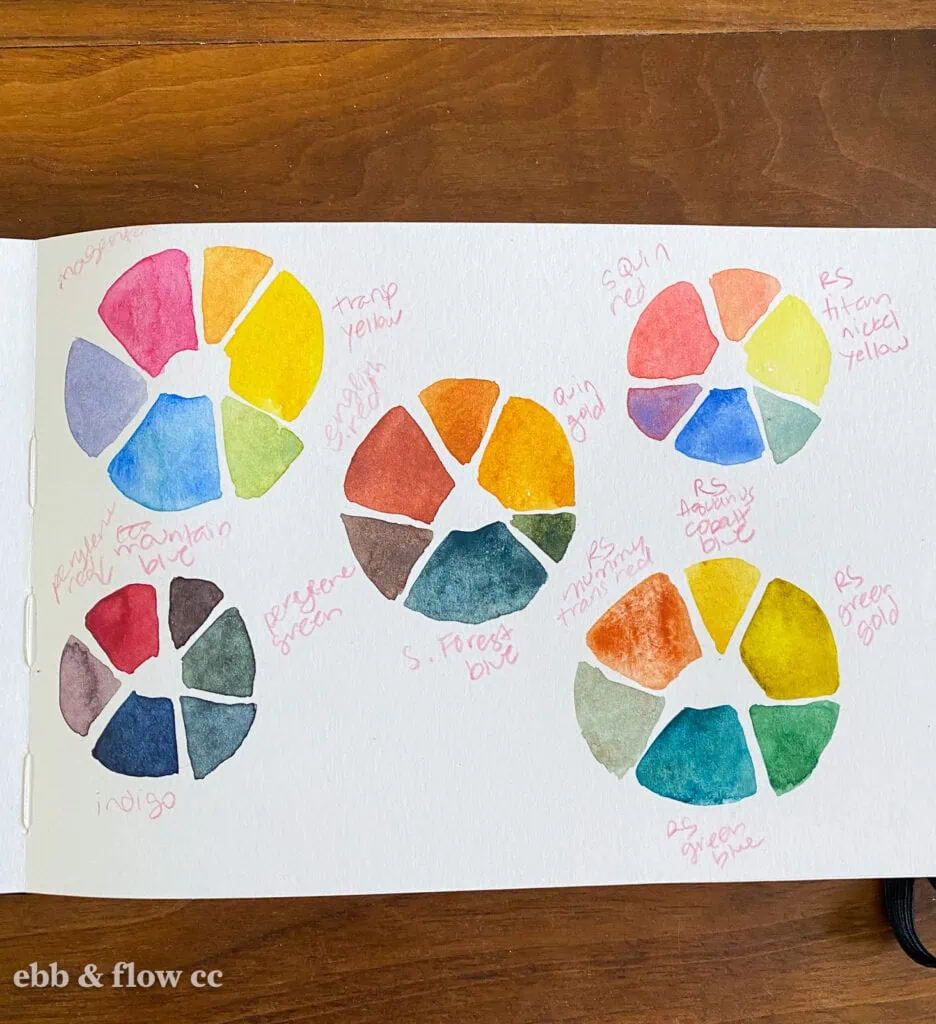 magenta
tranp
yellow
EGS
mountain
blue
S. english
red
quin
gold
S. Forest
blue
S Quin
red
RS
titan
nickel
yellow
RS
Aquarius
cobalt
blue
perylene
red
perylene
green
indigo
RS
mummy
trans red
RS
green
gold
RS
green
blue
ebb & flow cc